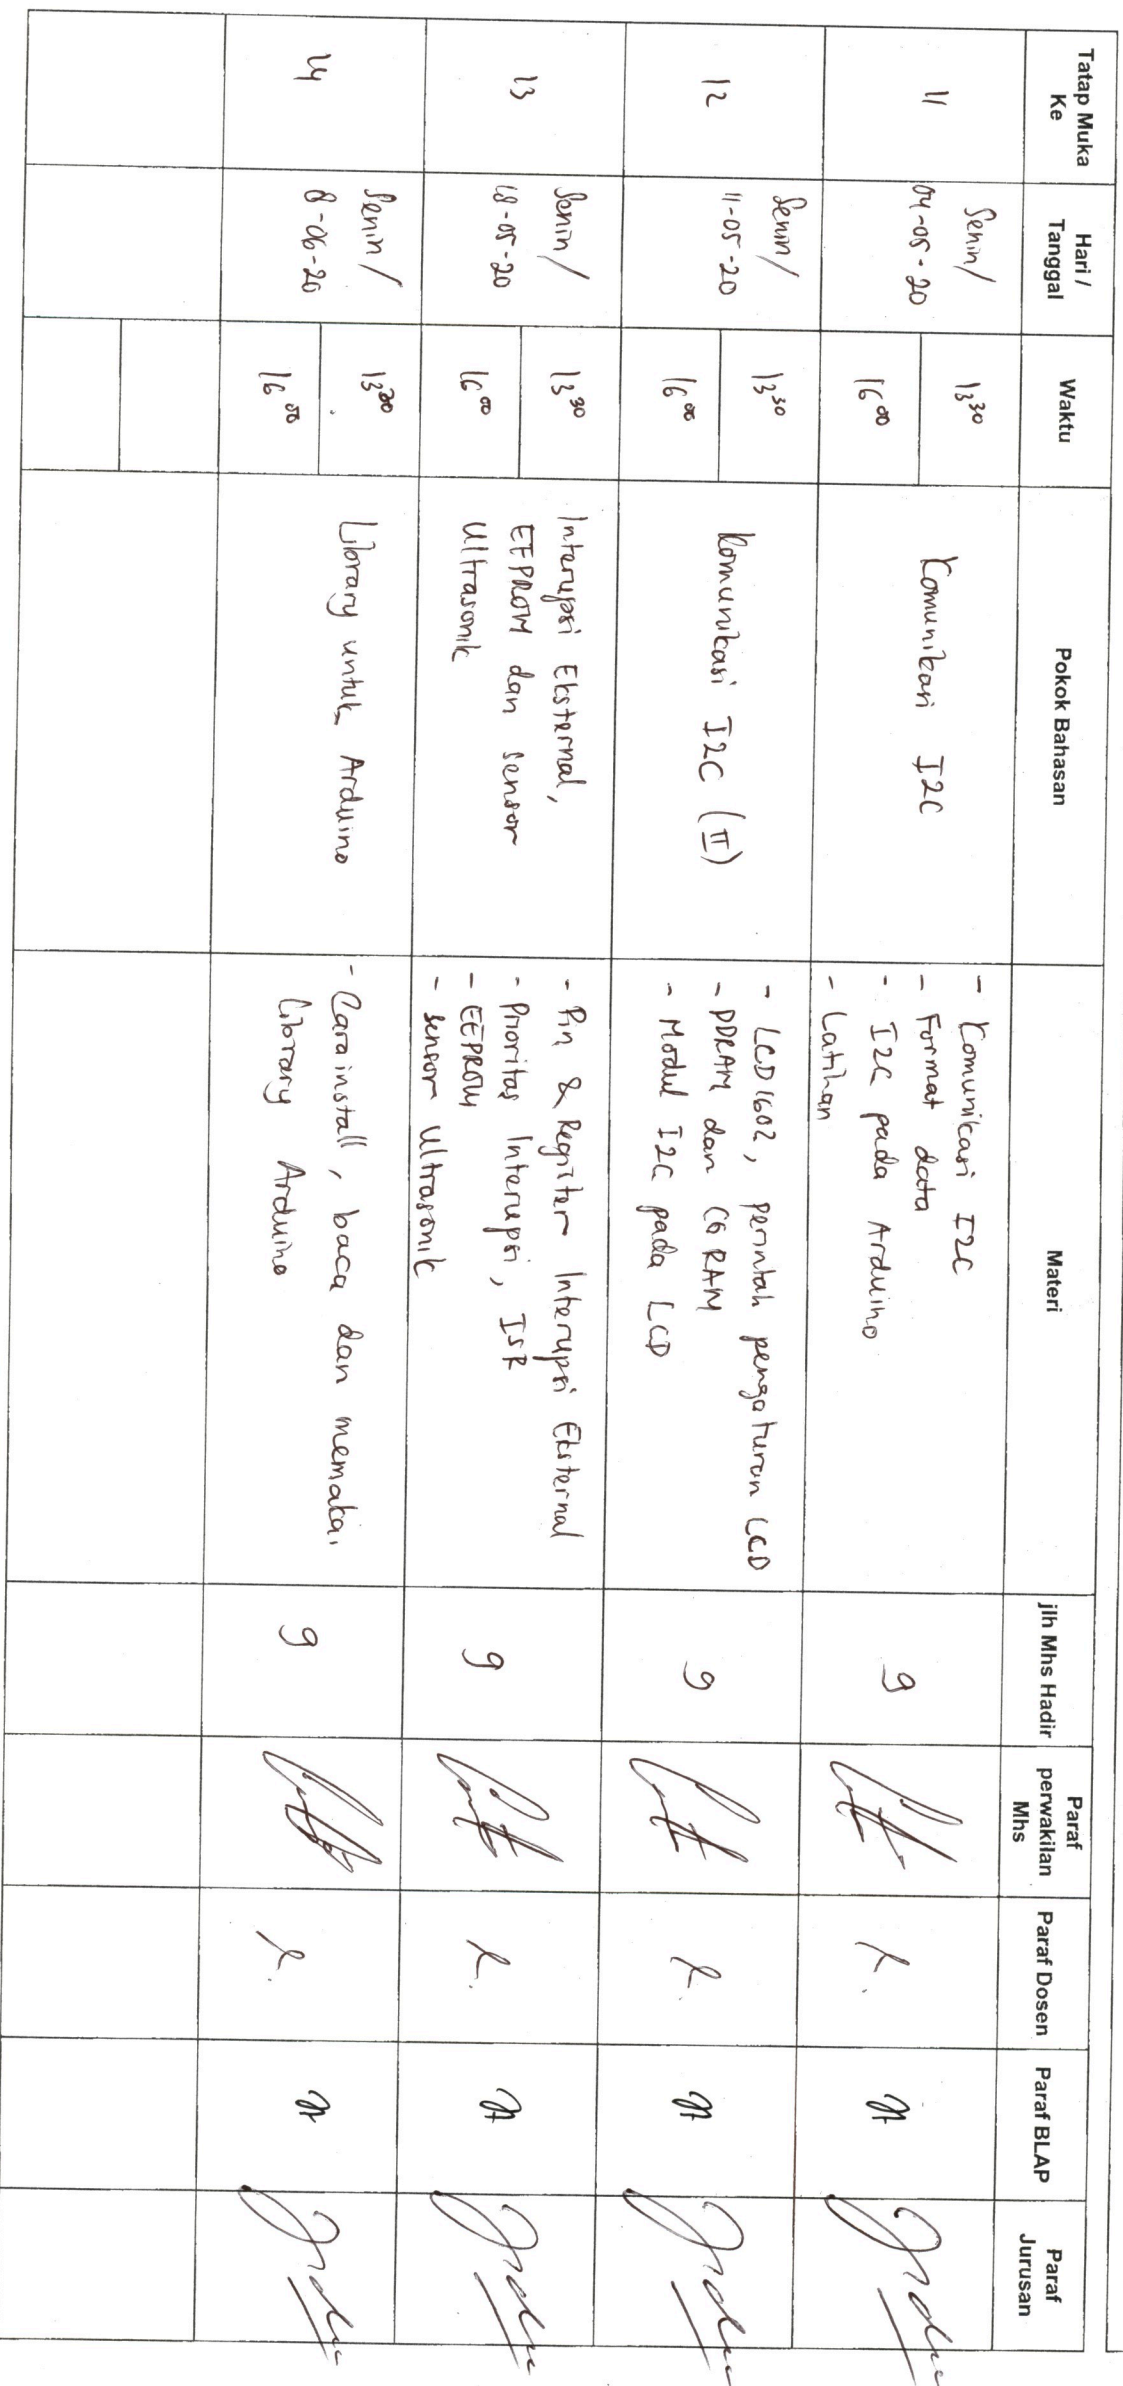 Tatap Muka
Ke
Hari /
Tanggal
Waktu
Pokok Bahasan
Materi
jlh Mhs Hadir
Paraf
perwakilan
Mhs
Paraf Dosen
Paraf BLAP
Paraf
Jurusan
11
Senin/
04-05-20
13 30
16 00
Komunikasi I2C
- Komunikasi I2C
- Format data
- I2C pada Arduino
- Latihan
9
12
Senin/
11-05-20
13 30
16 00
Komunikasi I2C (II)
- LCD 1602, perintah pengaturan LCD
- DDRAM dan CG RAM
- Modul I2C pada LCD
9
13
Senin/
18-05-20
13 30
16 00
Interupsi Eksternal,
EEPROM dan sensor
Ultrasonik
- Pin & Register Interupsi Eksternal
- Prioritas Interupsi, ISR
- EEPROM
- sensor Ultrasonik
9
14
Senin/
8-06-20
13 30
16 00
Library untuk Arduino
- Cara install, baca dan memakai
Library Arduino
9